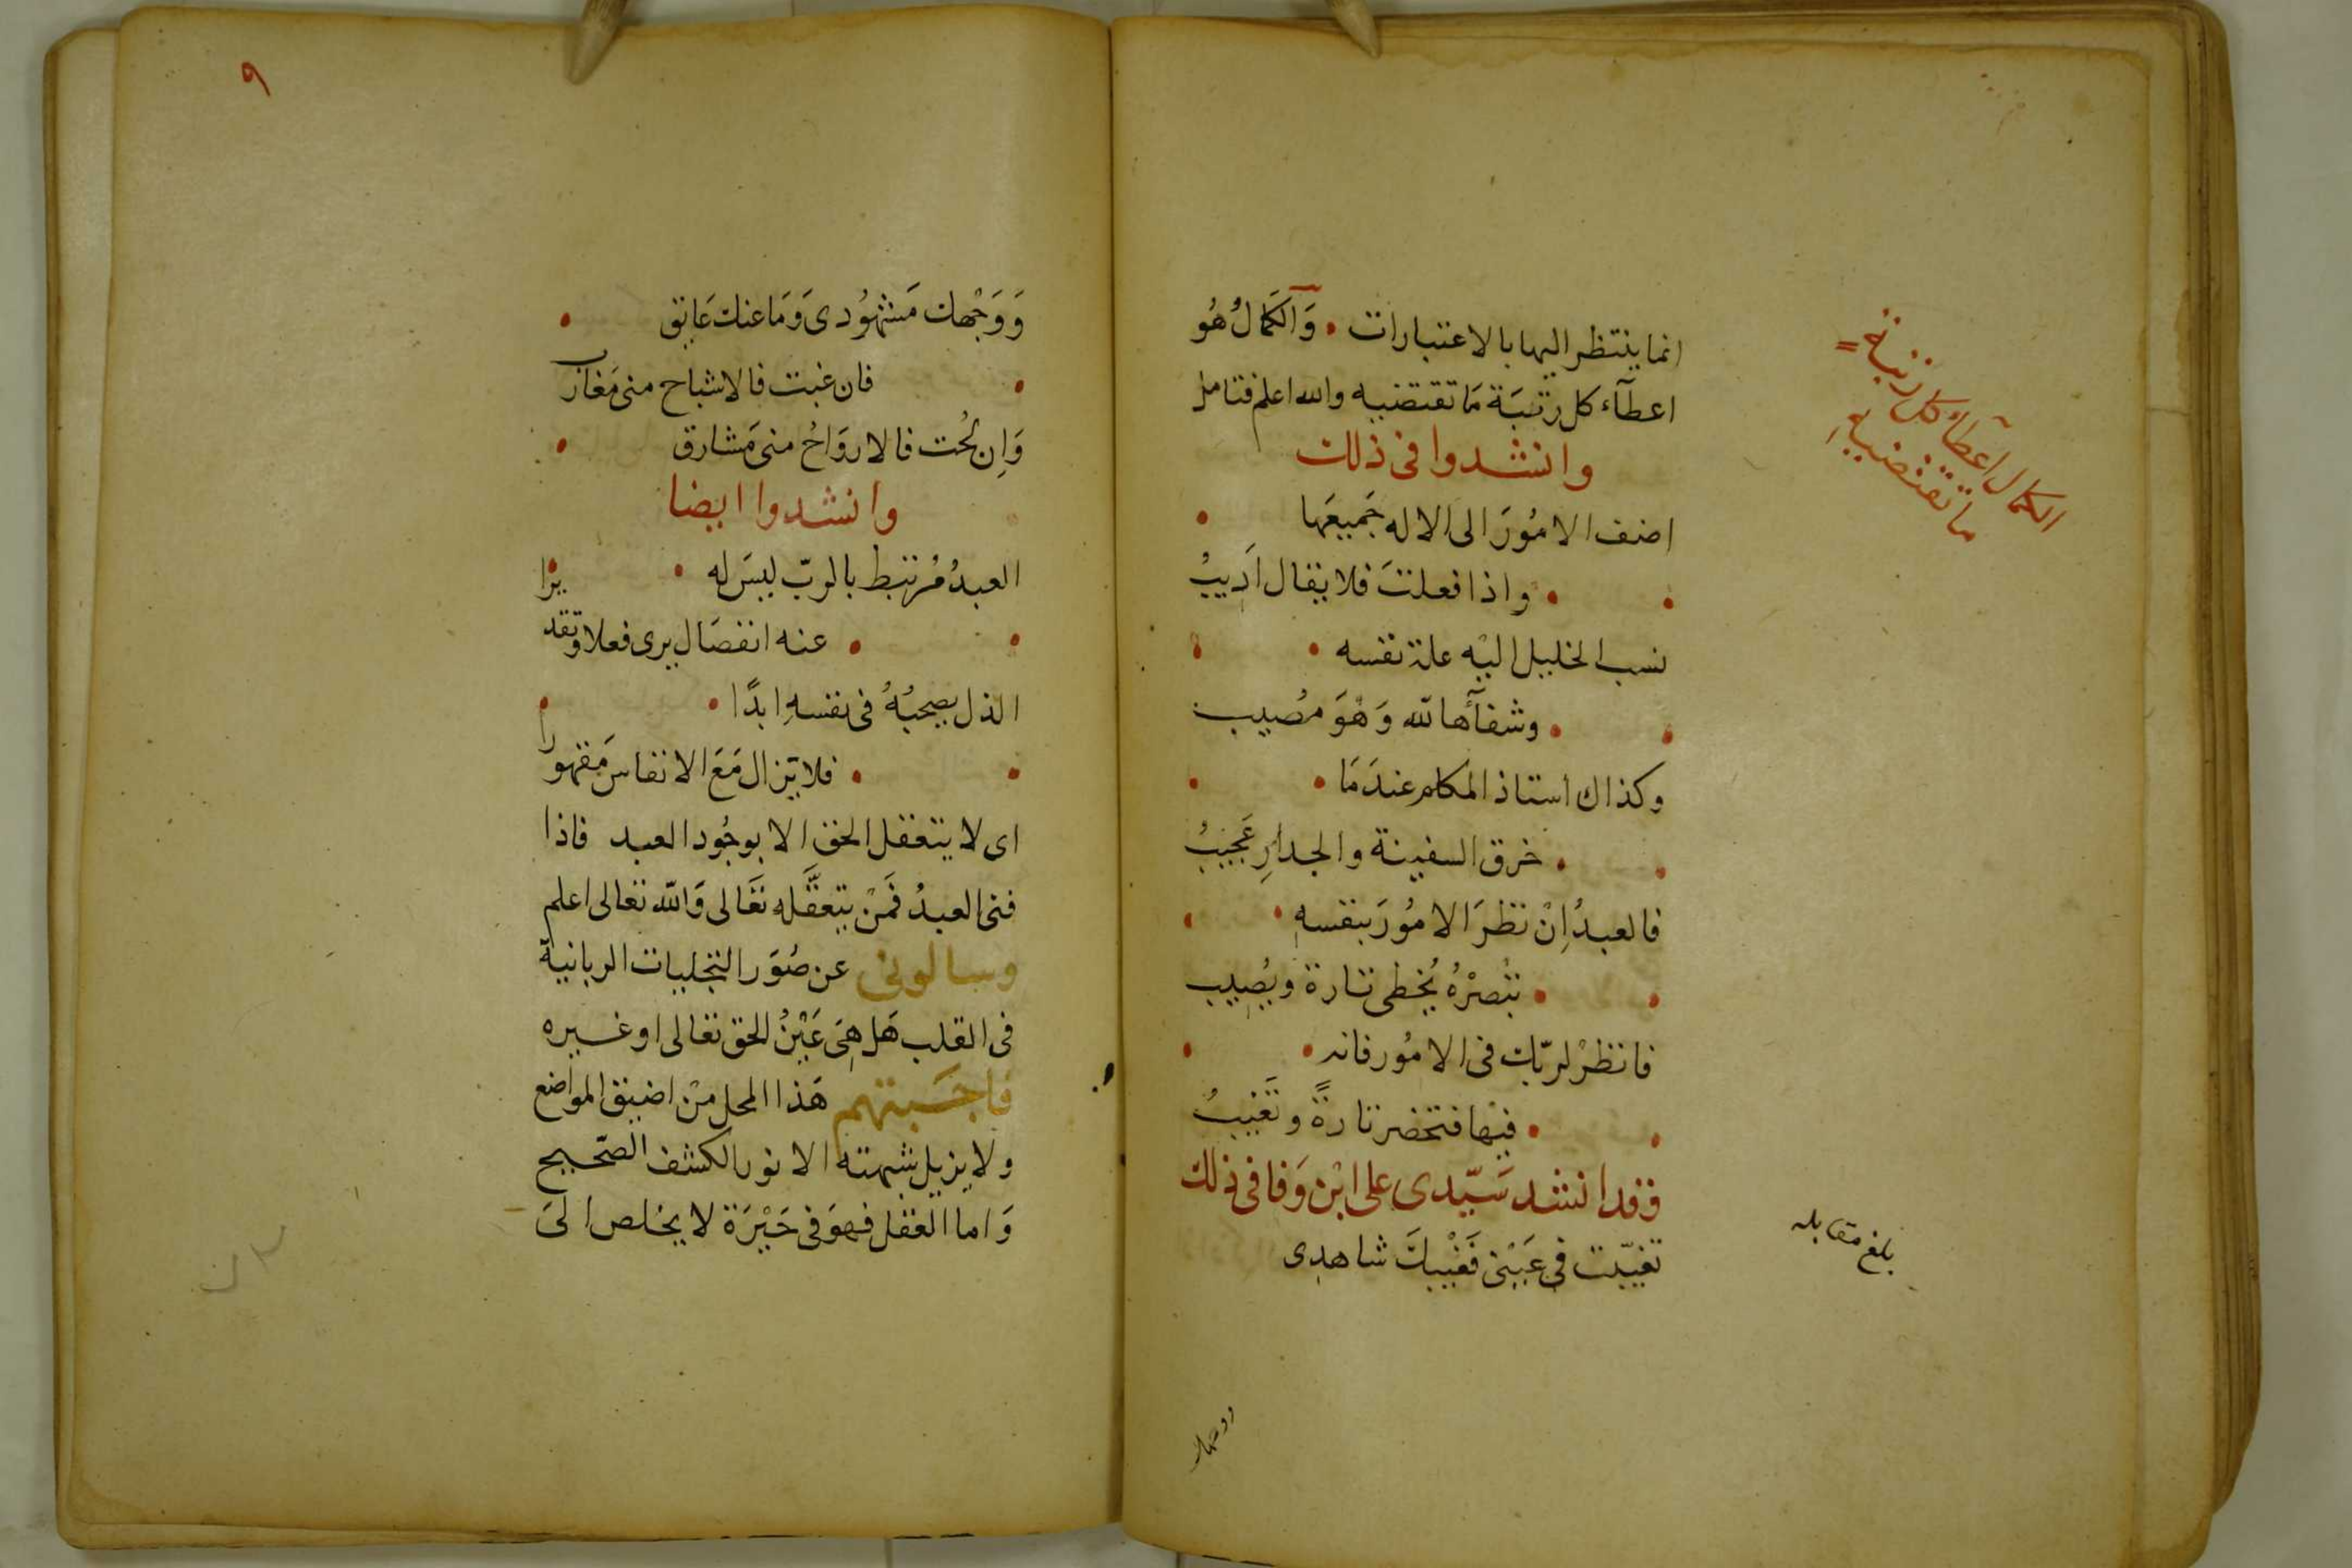 انما ينتظر اليها بالاعتبارات • وَالكَمالُ هُو
اعطآء كل رتبَة مَا تقتضيه والله اعلم فتامل
وانشدوا فى ذلك
اضف الامُورَ الى الاله جَميعَها
واذا فعلتَ فلا يقال اَدِيبُ
نسب الخليل اليْه علة نفسه
وشفآؤُها لله وَهْوَ مصُيب
وكذاك استاذ المكلم عندَمَا
خرق السفينة والجدارِ عَجيبُ
فالعبدُ اِنْ نظرَ الامُورَ بنفسهِ
تبْصرْهُ يُخطى تارة ويُصِيب
فانظرْ لربّك فى الامُور فانه
فيْها فتحضر تارةً وتَغيبُ
وقد انشد سَيّدى على ابْن وَفا فى ذلك
تغيّبت فى عَيْنى فَغيْبكَ شاهدِى
ووجهك
الكمال اعطآء كل رتبة
ما تقتضيه
بلغ مقابله
٩
وَوَجْهك مَشهُودى وَمَا عنك عَايق
فان غبت فالاشباح منى مَغارب
وَاِن لُحت فالاروَاحُ منى مَشارق
وانشدوا ايضا
العبدُ مُرتبط بالربّ ليسَ له
عنه انفصَال يرى فعلا وتقديرا
الذل يصحبُهُ فى نفسهِ ابدًا
فلا يَزال مَعَ الانفاس مَقهورا
اى لا يتعقل الحق الا بوجُود العبد فاذا
فنى العبدُ فَمَنْ يتعقَّله تعَالى وَالله تعالى اعلم
وسالونى عن صُوَر التجليات الربانية
فى القلب هَل هِىَ عَيْنُ الحق تعالى او غيره
فاجَبتهم هَذا المحل منْ اضيق المواضع
ولا يزيل شبهته الا نور الكشف الصّحيح
وَاما العقل فهوَ فى حَيْرَة لا يخلص الىَ